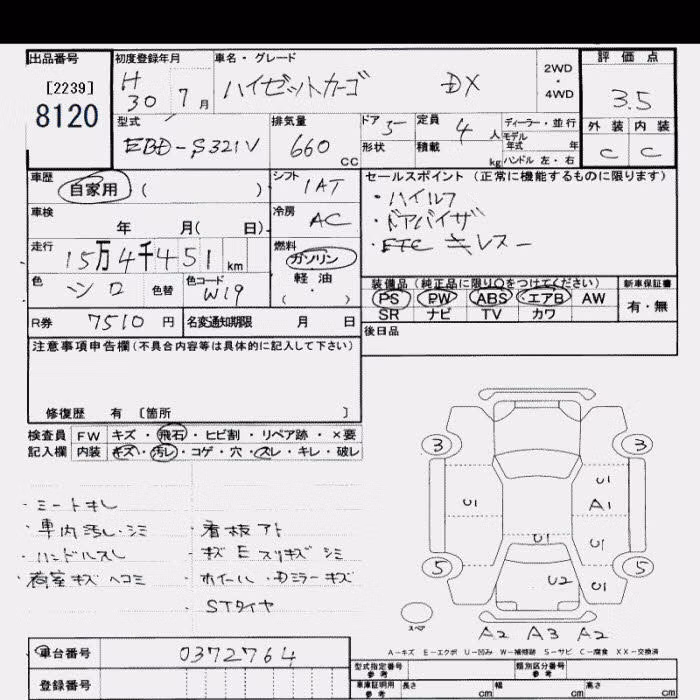 出品番号
[2239]
8120
初度登録年月
H
30 7 月
車名・グレード
ハイゼットカーゴ DX
2WD
・
4WD
評価点
3.5
外装 内装
C C
型式
EBD-S321V
排気量
660 CC
ドア 5
形状
定員 4 人
積載 kg
ディーラー・並行
モデル
年式 年
ハンドル 左・右
車歴
自家用 ( )
シフト
1AT
車検
年 月( 日)
冷房
AC
走行
15万4千451 km
燃料
ガソリン
軽油
( ・ )
色
シロ
色替
色コード
W19
R券 7510 円
名変通知期限 月 日
セールスポイント (正常に機能するものに限ります)
・ハイルフ
・ドアバイザ
・ETC キレスー
装備品 (純正品に限り○をつけてください)
新車保証書
PS PW ABS エアB AW
SR ナビ TV カワ
有・無
後日品
注意事項申告欄 (不具合内容等は具体的に記入して下さい)
修復歴 有 〔箇所 〕
検査員
記入欄
FW キズ・飛石・ヒビ割・リペア跡・×要
内装 キズ・汚レ・コゲ・穴・スレ・キレ・破レ
・ミートキレ
・車内汚レ・シミ
・ハンドルスレ
・荷室キズ ヘコミ
・看板アト
・キズ E スリキズ シミ
・ホイール・Dミラーキズ
・STタイヤ
3 3
U1
U1
A1
U1
U1
U2 U1
5 5
スペア
A2 A3 A2
A-キズ E-エクボ U-凹み W-補修跡 S-サビ C-腐食 XX-交換済
車台番号 0372764
登録番号
型式指定番号
参考
類別区分番号
参考
車庫証明用
参考
長さ cm
幅 cm
高さ cm